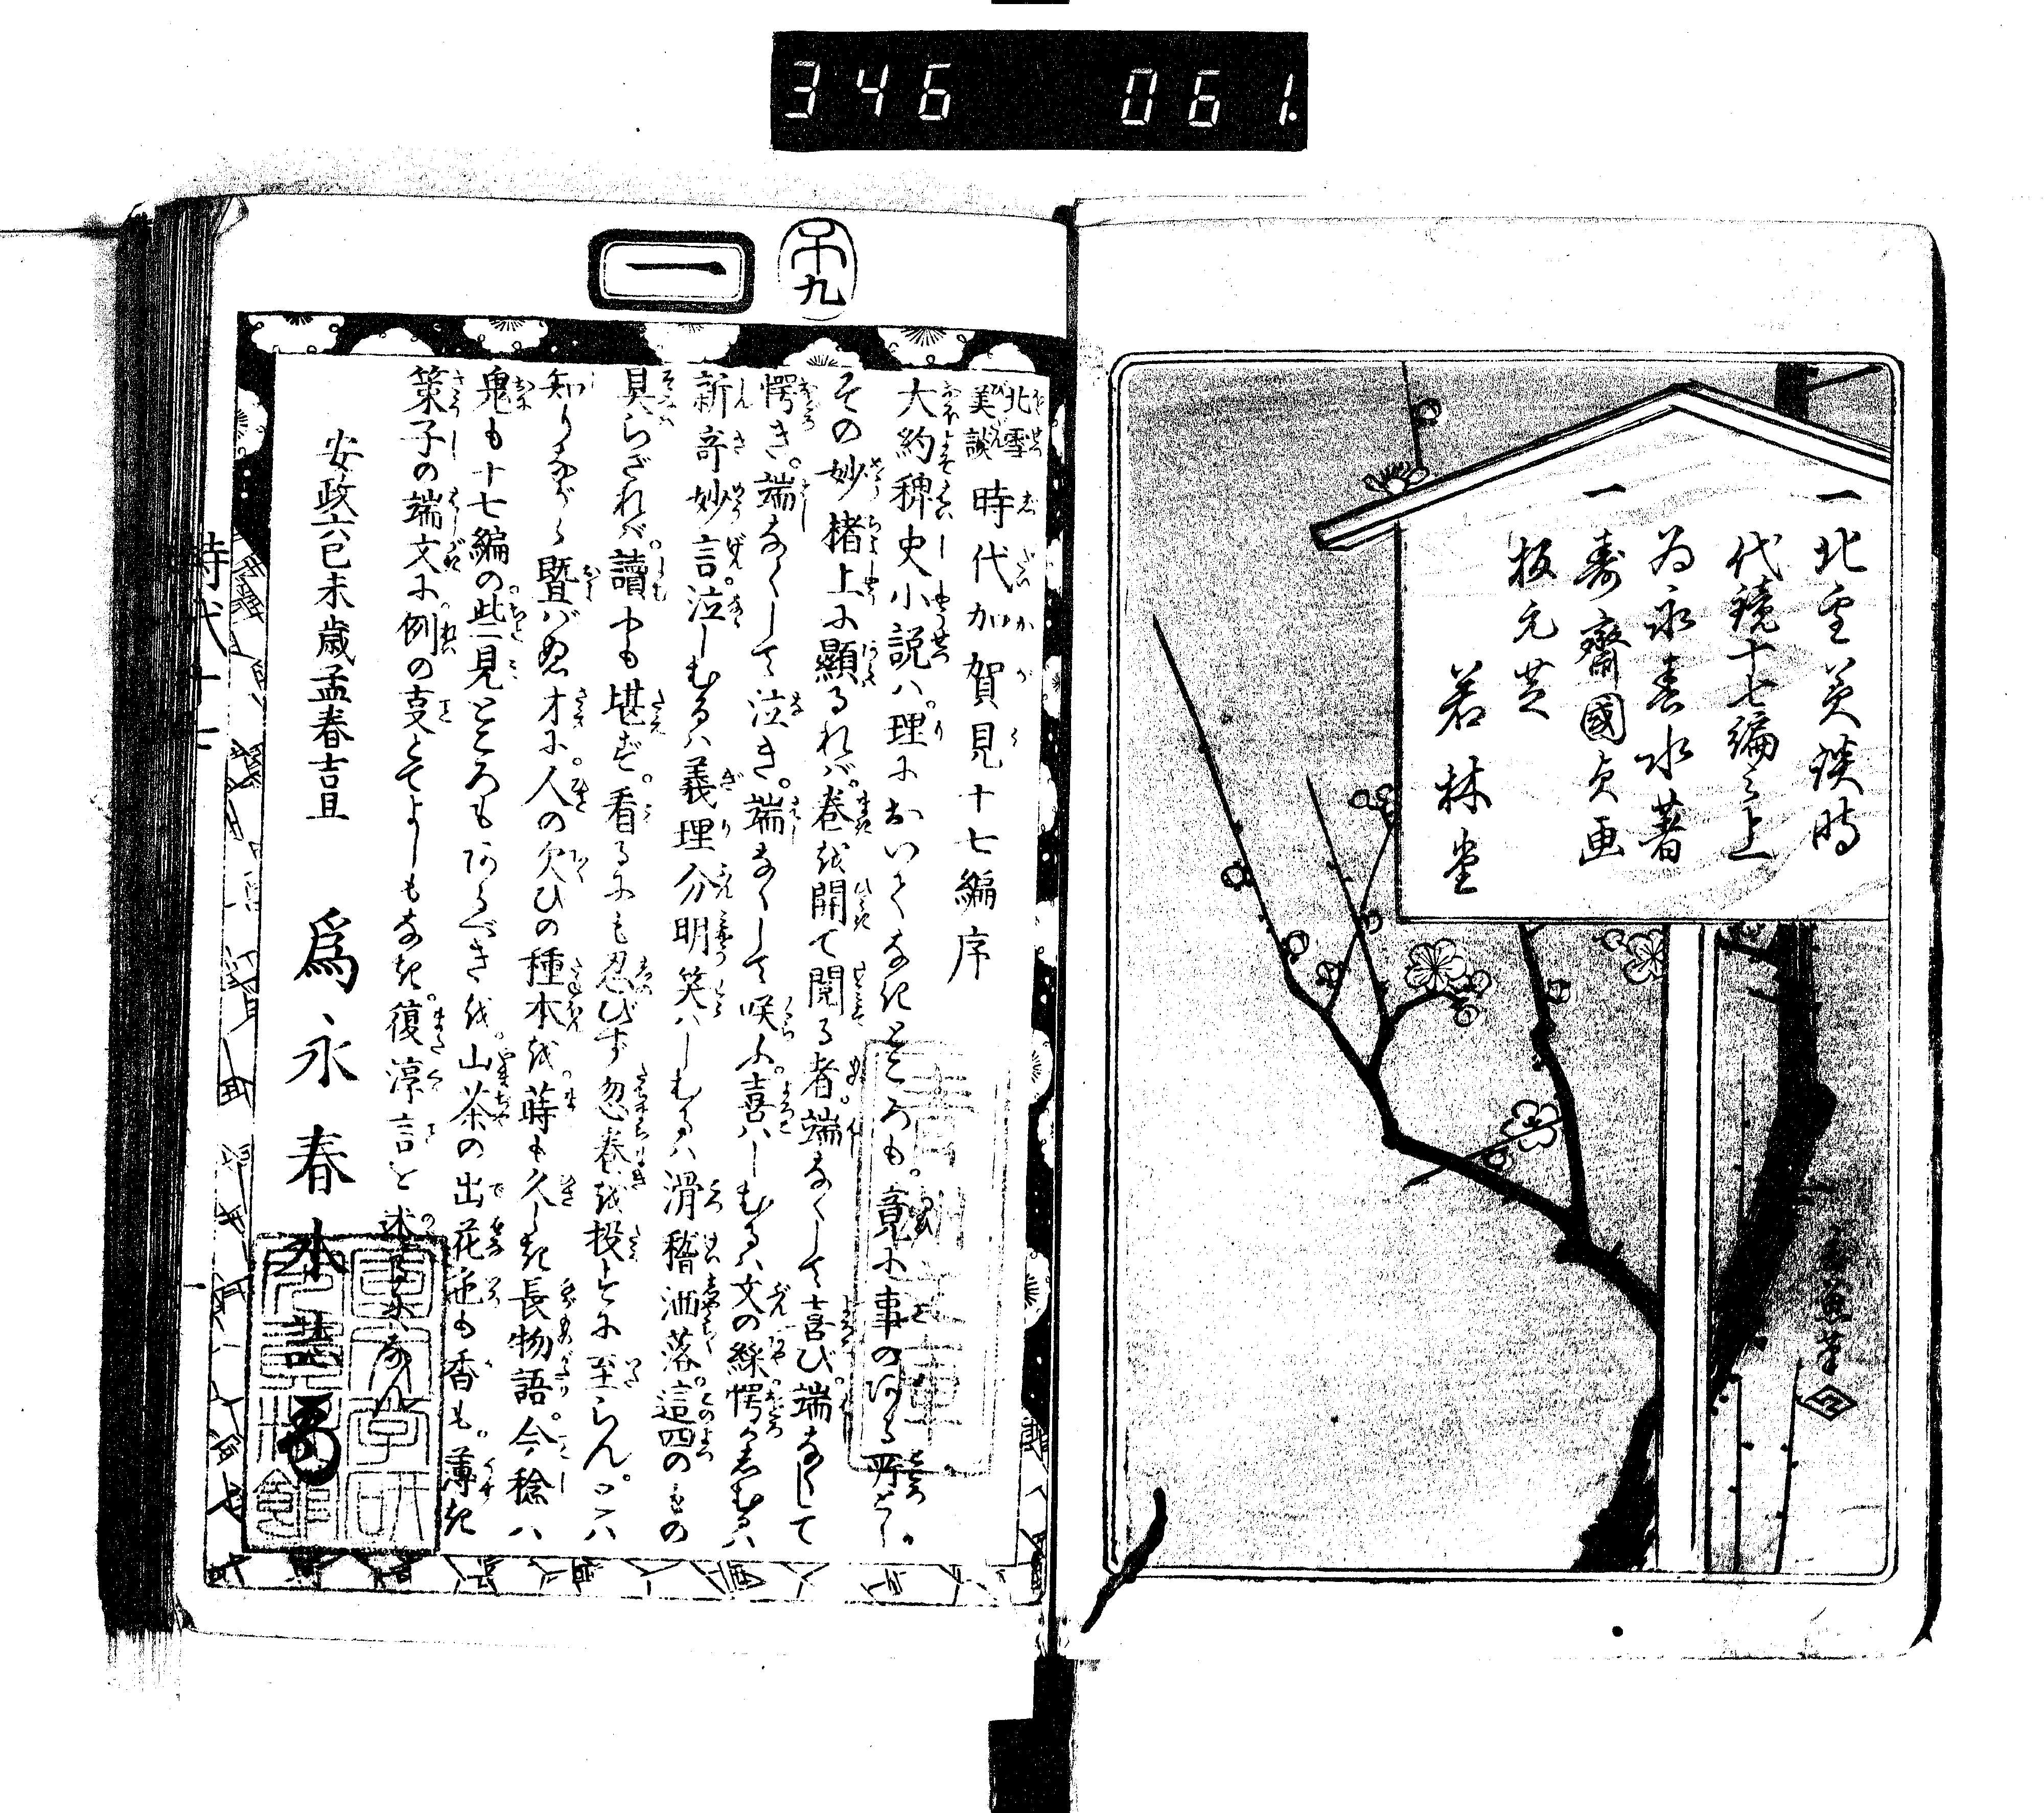 346 061.
一北雪美談時
代鏡十七編之上
為永春水著
一壽齋國貞画
板元芝
若林堂
一
九
北雪美談 時代加賀見十七編序
大約稗史小説ハ。理においてなきところも。竟に事のある所とし。
その妙楮上に顯るれバ。巻を開て閲る者。端なくして喜び。端なくして
愕き。端なくして泣き。端なくして咲ふ。喜ハしむるハ文の絲。愕かしむるハ
新奇妙言。泣しむるハ義理分明。笑ハしむるハ滑稽洒落。這四のもの
具らざれバ。讀にも堪ず。看るにも忍びず。忽巻を投るに至らん。コハ
知りながら暨バぬ才に。人の欠ひの種本を。蒔も久しき長物語。今稔ハ
鬼も十七編の。些見ところもあるべきを。山茶の出花色も香も。薄き
策子の端文に。例の叓とてよしもなき。復淳言を
安政六己未歳孟春吉旦
爲永春水誌
時代十七
一